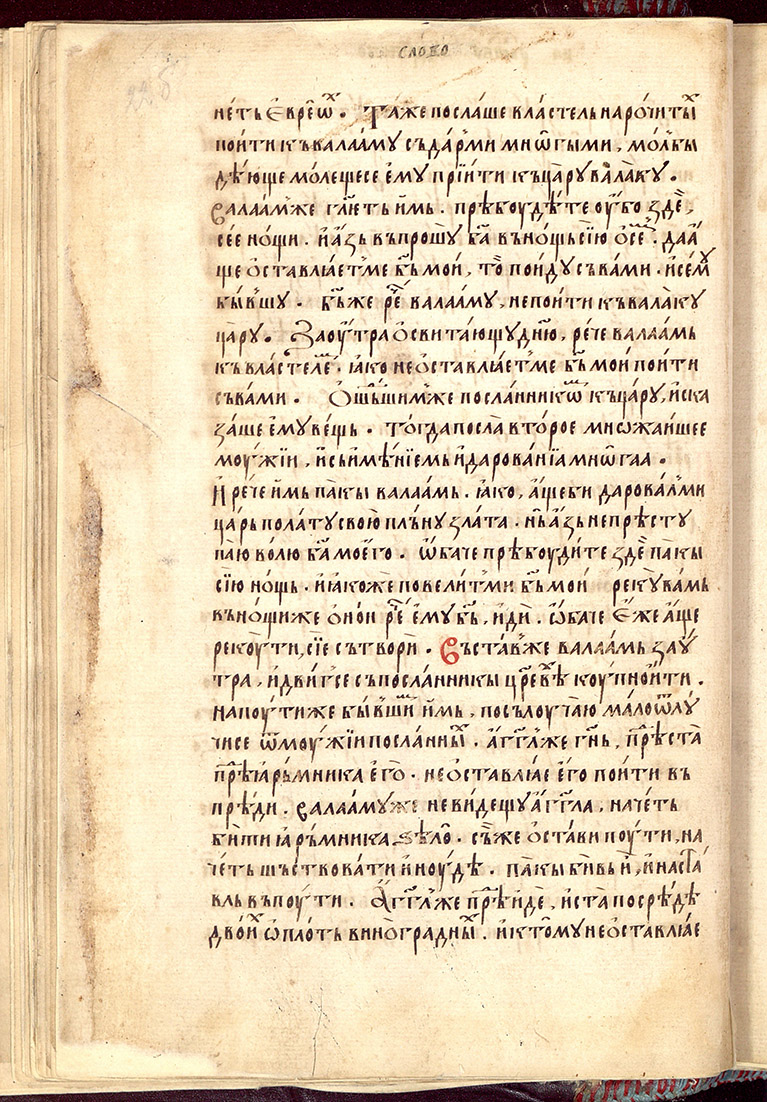 слово
не́ть Е҆вре́ѡⷯ. Та́же послаше вла́стель наро́читыⷯ
пои́ти къ валаа́му съ да́рми мнѡ́гыми, мо́лбы
дѣ́юще молещесе е҆му прїи́ти къ ца́ру вала̀ку.
Валаа́мже гл҃еть и҆мь. прѣбоудѣ́те оу҆́бо здѐ,
сее но́щи. и҆ а҆́зь въпрошꙋ̀ ба҃ въ но́щь сїю ѻ҆ сеⷨ. да а҆́
ще ѻ҆ставлꙗ́етме бь҃ мо́й, то̀ по́йду съ ва́ми. и҆ семꙋ̀
бы́вшу. бь҃ же реⷱ҇ валаа́му, не пои́ти къ вала̀ку
ца́ру. Заоу҆́тра ѻ҆сви́тающу дн҃ю, ре́че валаа́мь
къ вла́стелеⷨ. ꙗ҆ко не ѻ҆ставлꙗ́етме бь҃ мо́й пои́ти
съ ва́ми. Ѻ҆шь́шимже посла́нникѡⷨ къ ца́ру, и҆ска
за́ше е҆му ве́щь. То́гда посла̀ вто́рое мнѡжа́ишее
моу́жїи, и҆ съ и҆мѣ́нїемь и҆ дарова́нїа мнѡ́гаа.
И҆ ре́че и҆мь па́кы валаа́мь. ꙗ҆ко, а҆́ще би дарова́лми
ца́рь пола́ту свою̀ пль́ну зла́та. нь҆ а҆́зь не прѣсту
па́ю во́лю ба҃ мое҆го. ѡ҆́баче прѣбоуди́те здѐ па́кы
сїю но́щь. и҆ ꙗ҆коже повели́тми бь҃ мо́й рекꙋ̀ ва́мь
въ но́щи же ѻ҆но́и реⷱ҇ е҆му бь҃, и҆дѝ. ѡ҆́баче е҆́же а҆́ще
реко́у ти, сїе сътворѝ. Въста́вже валаа́мь заоу҆́
тра, и҆ дви́гсе съ посла́нникы цр҃евѣⷨ коу́пно и҆ти.
на поу́ти же бы́вшиⷨ и҆мь, по сълоу́чаю ма́ло ѿлу́
чисе ѿ моу́жїи посла́нныⷯ. а҆́гг҃лже гн҃ь, прⷣѣ ста̀
прⷣѣ ꙗ҆ръ́мника е҆го̀. не ѻ҆ставлꙗ́е е҆го пои́ти въ
прѣ́ди. Валаа́му же не ви́дещу а҆́гг҃ла, на́четь
би́ти ꙗ҆ръ́мника ѕѣлѡ̀. съ́ же ѻ҆ста́ви поу́ти, на
че́ть шь́ствовати и҆ноу́дѣ. па́кы би́вь и҆, и҆ наста́
вль въ поу́ти. А҆́гг҃лже прⷣѣи́де, и҆ ста̀ посрѣ́дѣ
двои́ⷯ ѡ҆пло́ть виногра́дныⷯ. и҆ к то́му не ѻ҆ставлꙗ́е